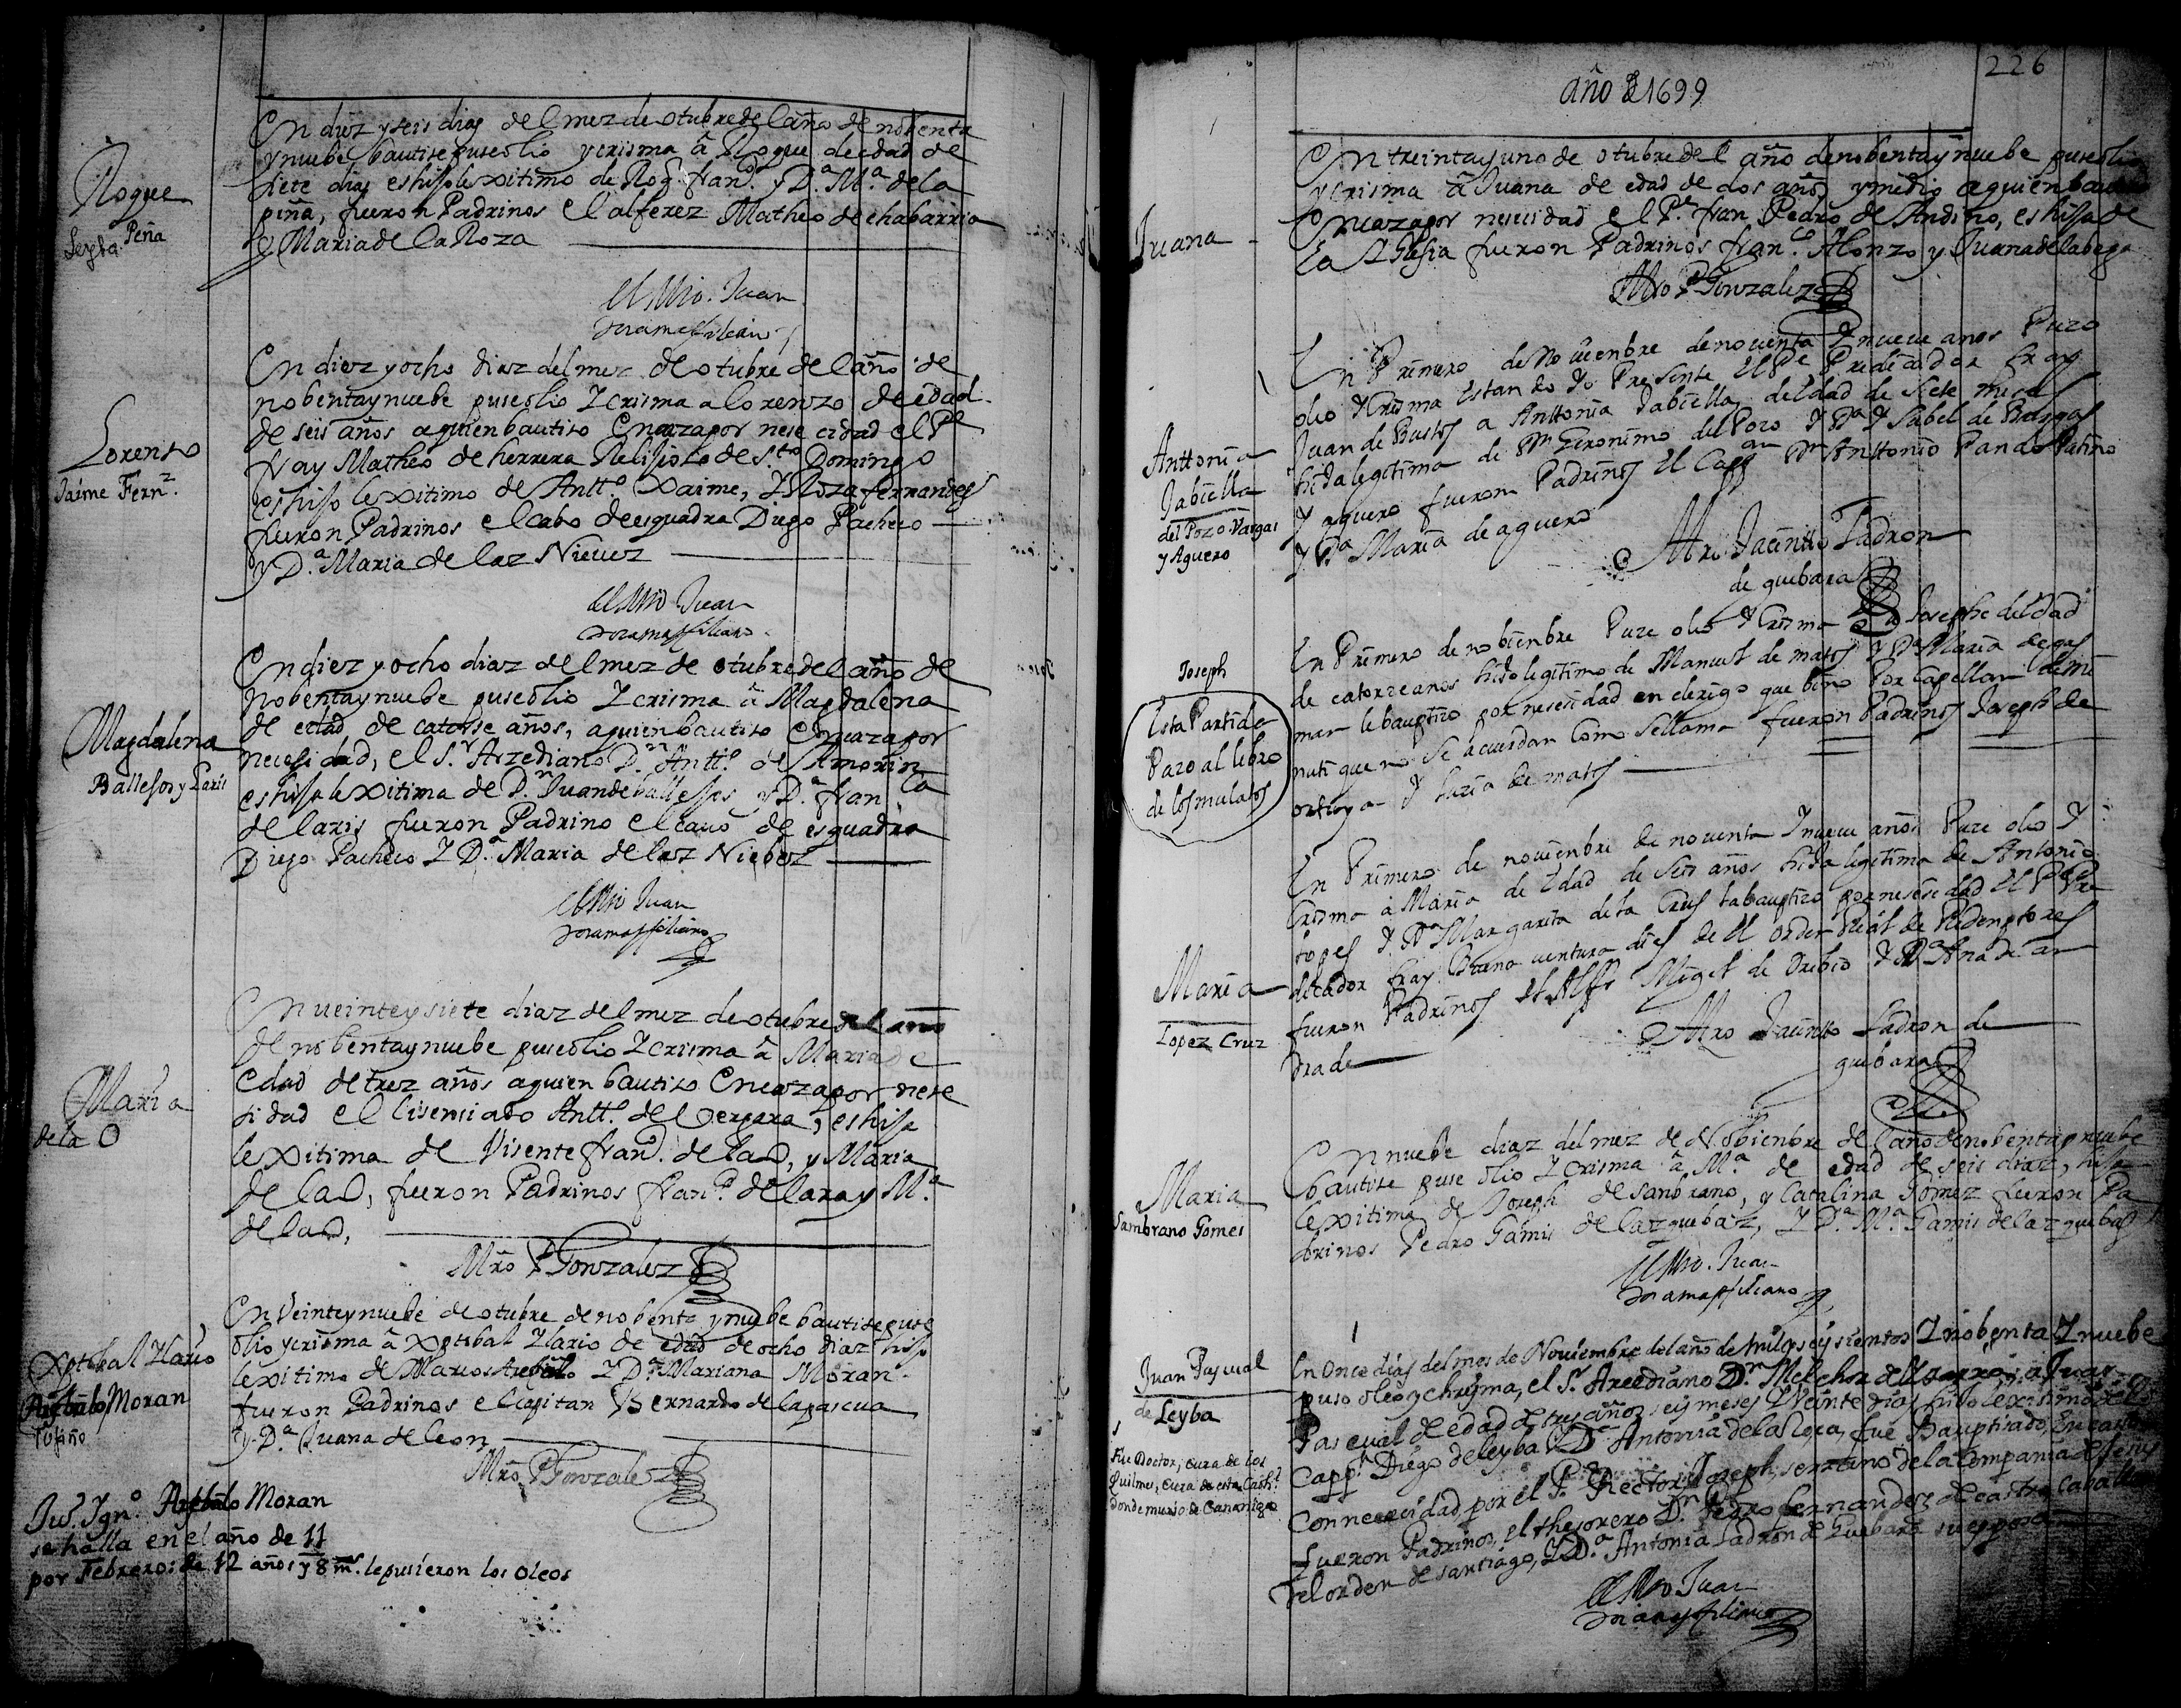 Roque
Leyba Peña
En diez y seis dias del mez de otubre del año de nobenta
y nuebe bautise puse olio y crisma â Roque de edad de
siete dias es hijo lexitimo de Roq.e fran.co y D.a M.a de la
piña, fueron Padrinos el alferez Matheo de chabarria
y Maria de la Roza
el Mro. Juan
Lorenso
Jaime Fern.z
En diez y ocho diaz del mez de otubre del año de
nobenta y nuebe puse olio y crisma a lorenzo de edad
de seis años a quien bautiso en caza por nese cidad el P.e
fray Matheo de herrera Relijioso de S.to Domingo
es hijo lexitimo de Antt.o Xaime, y Roza fernandes
fueron Padrinos el cabo de esquadra Diego Pacheco
y D.a Maria de laz Nievez
el Mro Juan
Magdalena
Ballesos y Laris
En diez y ocho diaz del mez de otubre del año de
nobenta y nuebe puse olio y crisma â Magdalena
de edad de catorse años, a quien bautiso en caza por
necesidad, el S.r Arzediano D.n Antt.o de Amorin
es hija lexitima de D.n Juan de ballesos y D.a fran.ca
de laris fueron Padrino el cauo de esquadra
Diego Pacheco y D.a Maria de laz Niebez
el Mro Juan
Maria
de la O
En veinte y siete diaz del mez de otubre del año
de nobenta y nuebe puse olio y crisma â Maria de
edad de trez años a quien bautiso en caza por nese
sidad el lisensiado Antt.o de Vergara, es hija
lexitima de Visente fran.co de la O, y Maria
de la O, fueron Padrinos fran.co de lara y M.a
de la O,
Mro P Gonzalez
Xptobal Ylario
Arebalo Moran
Tufiño
En Veinte y nuebe de otubre de nobenta y nuebe bautise puse
olio y crisma â Xptobal Ylario de edad de ocho diaz hijo
lexitimo de Marcos Arebalo y D.a Mariana Moran
fueron Padrinos el capitan Bernardo de la pascua
y D.a Juana de leon
Mro P Gonzalez
Ju.o Ygn.o Arebalo Moran
se halla en el año de 11
por Febrero: de 12 años y 8 m.s le pusieron los oleos
226
año de 1699
Juana
En treinta y uno de otubre del año de nobenta y nuebe puse olio
y crisma â Juana de edad de dos años y medio a quien bautiso
en caza por nesecidad el P.e fran Pedro de Andino, es hija de
la Yglesia fueron Padrinos fran.co Alonzo y Juana de la bega
Mro P Gonzalez
Anttonia
Jabiella
del Pozo Vargas
y Aguero
En Primero de Noviembre de noventa y nueve anos Puzo
oleo y Crisma estando yo Presente el P.e Predicador fray
Juan de Bustos a Anttonia Jabiella, de edad de siete meses
hija legitima de D.n Geronimo del Pozo y D.a Ysabel de Bargas
y aguero fueron Padrinos el Capp.an D.n Anttonio Pando Patiño
y D.a Maria de aguero
Mro Jacintto Ladron
de guebara
Joseph
Esta Partida
Pazo al libro
de los mulatos
En Primero de nobienbre Puze oleo y Crisma a Josephe de edad
de catorze anos hijo legitimo de Manuel de matos y D.a Maria de gas
man le bauptizo por nesesidad un clerigo que bino Por Capellan de mi
nuti que no se acuerdan como se llama fueron Padrinos Joseph de
ortega y luzia de matos
Maria
Lopez Cruz
En Primero de noviembre de noventa y nueve años Puze oleo y
Crisma a Maria de Edad de Seis años hija legitima de Antonio
lopes y D.a Margarita de la Crus la bauptizo por nesesidad el P.e Pre
dicador fray Buena ventura dies de el orden Real de Redemptores
fueron Padrinos el Alf.s Migel de Oribio y D.a Ana de an
drade
Mro Jacintto Ladron de
guebara
Maria
Sambrano Gomes
En nuebe diaz del mez de Nobienbre del año de nobenta y nuebe
bautise puse olio y crisma â M.a de edad de seis diaz, hija
lexitima de Joseph de sanbrano, y Catalina Gomez fueron Pa
drinos Pedro Gamis de laz quebaz, y D.a M.a Gamis de laz quebas
el Mro. Juan
Juan Pasqual
de Leyba
Fue Doctor, cura de los
Quilmes, cura de esta Cath.l
donde murio de Cananigo
En Once dias del mes de Noviembre del año de mill y seysientos y nobenta y nuebe
puso oleo y chrisma, el S.r Arcediano D.n Melchor de Yzarra; a Juan
Pascual de edad de tres años seis meses y Veinte dias hijo lexitimo del
Capp.n Diego de leyba y D.a Antonia de la Roza, fue Bauptisado, En caza
Con necesidad por el P.e Rector Joseph serrano de la Compania de Jesus
fueron Padrinos, el thesorero D.n Pedro fernandez de castro Caballero
del orden de santiago, y D.a Antonia Ladron de Guebara su esposa
el Mro Juan